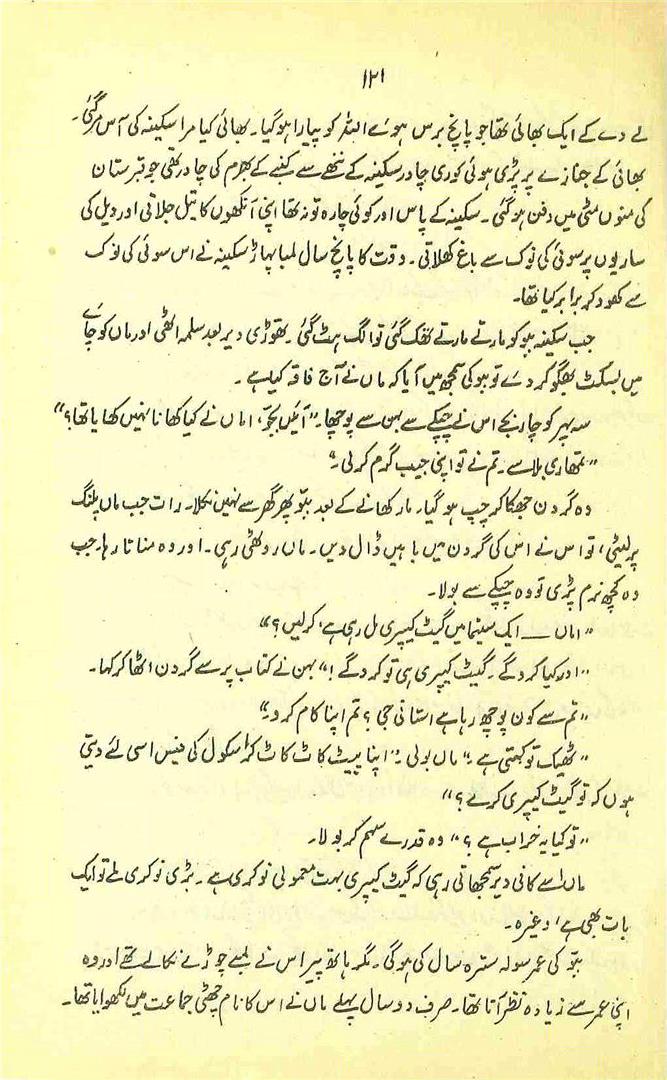 ۱۲۱
لے دے کے ایک بھائی تھا جو پانچ برس ہوئے اللہ کو پیارا ہو گیا۔ بھائی کیا مرا سکینہ کی آس مر گئی۔
بھائی کے جنازے پر پڑی ہوئی کوری چادر سکینہ کے ننھے سے کنبے کے بھرم کی چادر تھی جو قبرستان
کی منوں مٹی میں دفن ہو گئی۔ سکینہ کے پاس اور کوئی چارہ تو نہ تھا اپنی آنکھوں کا تیل جلاتی اور ویل کی
ساریوں پر سوئی کی نوک سے باغ کھلاتی۔ وقت کا پانچ سال لمبا پہاڑ سکینہ نے اس سوئی کی نوک
سے کھود کر برابر کیا تھا۔
جب سکینہ ببو کو مارتے مارتے تھک گئی تو الگ ہٹ گئی۔ تھوڑی دیر بعد سلمہ اٹھی اور ماں کو چائے
میں بسکٹ بھگو کر دئے تو ببو کی سمجھ میں آیا کہ ماں نے آج فاقہ کیا ہے۔
سہ پہر کو چار بجے اس نے چپکے سے بہن سے پوچھا۔ "آئیں بجّو، اماں نے کیا کھانا نہیں کھایا تھا؟"
"تمھاری بلا سے۔ تم نے تو اپنی جیب گرم کر لی۔"
وہ گردن جھکا کر چپ ہو گیا۔ مار کھانے کے بعد ببّو پھر گھر سے نہیں نکلا۔ رات جب ماں پلنگ
پر لیٹی، تو اس نے اس کی گردن میں باہیں ڈال دیں۔ ماں روٹھی رہی۔ اور وہ مناتا رہا۔ جب
وہ کچھ نرم پڑی تو وہ چپکے سے بولا۔
"اماں ـــ ایک سینما میں گیٹ کیپری مل رہی ہے، کر لیں؟"
"اور کیا کرو گے۔ گیٹ کیپری ہی تو کرو گے!" بہن نے کتاب پر سے گردن اٹھا کر کہا۔
"تم سے کون پوچھ رہا ہے استانی جی؟ تم اپنا کام کرو۔"
"ٹھیک تو کہتی ہے۔" ماں بولی۔ "اپنا پیٹ کاٹ کاٹ کر اسکول کی فیس اسی لئے دیتی
ہوں کہ تو گیٹ کیپری کرے؟"
"تو کیا یہ خراب ہے؟" وہ قدرے سہم کر بولا۔
ماں اسے کافی دیر سمجھاتی رہی کہ گیٹ کیپری بہت معمولی نوکری ہے۔ بڑی نوکری ملے تو ایک
بات بھی ہے، وغیرہ۔
ببّو کی عمر سولہ سترہ سال کی ہو گی۔ مگر ہاتھ پیر اس نے لمبے چوڑے نکالے تھے اور وہ
اپنی عمر سے زیادہ نظر آتا تھا۔ صرف دو سال پہلے ماں نے اس کا نام چھٹی جماعت میں لکھوایا تھا۔